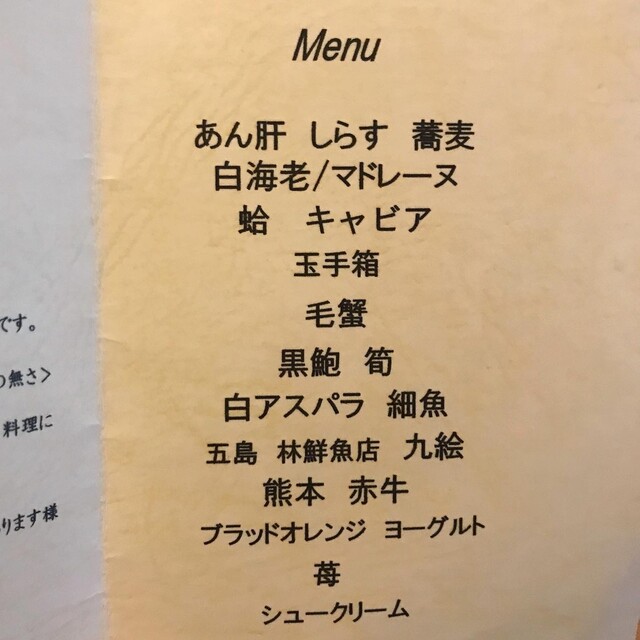 Menu
あん肝 しらす 蕎麦
白海老/マドレーヌ
蛤 キャビア
玉手箱
毛蟹
黒鮑 筍
白アスパラ 細魚
五島 林鮮魚店 九絵
熊本 赤牛
ブラッドオレンジ ヨーグルト
苺
シュークリーム
です。
の無さ>
料理に
ります様